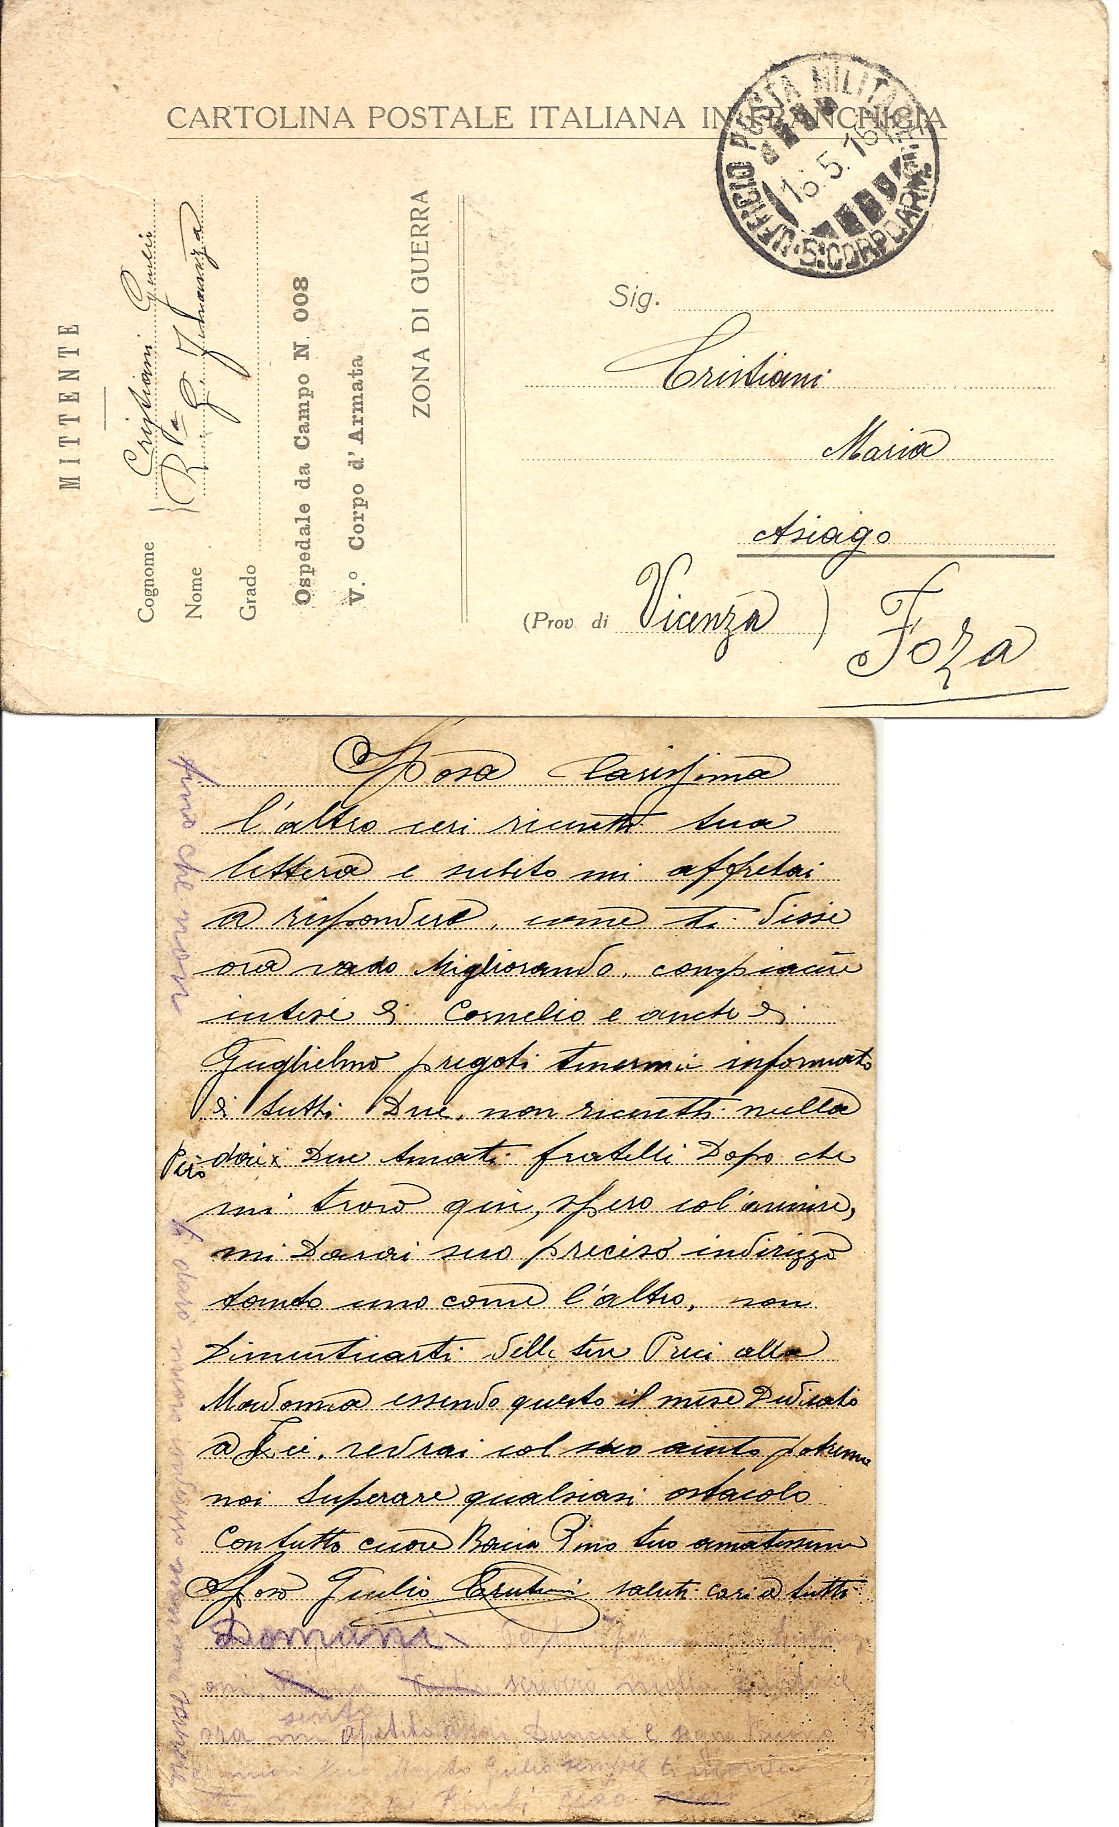 CARTOLINA POSTALE ITALIANA IN FRANCHIGIA
UFFICIO POSTA MILITARE
5º CORPO D'ARM.
MITTENTE
Cognome Cristiani Giulio
Nome R.ta G. Finanza
Grado
Ospedale da Campo N. 008
V.º Corpo d'Armata
ZONA DI GUERRA
Sig.
Cristiani
Maria
Asiago
(Prov. di Vicenza)
Foza
Sposa Carissima
l'altro ieri ricevetti tua
lettera e subito mi affretai
a rispondere, come ti dissi
ora vado Migliorando, con piacere
intesi di Cornelio e anche di
Guglielmo pregoti tenermi informato
di tutti Due, non ricevetti nulla
Però dai Due Amati fratelli Dopo che
mi trovo qui, spero col'avenire,
mi Darai suo preciso indirizzo
tanto uno come l'altro, non
Dimenticarti delle tue Preci alla
Madonna essendo questo il mese Dedicato
a Lei, vedrai col suo aiuto potremo
noi Superare qualsiasi ostacolo
Con tutto cuore Bacia Pino tuo amatissimo
Sposo Giulio Cristiani saluti cari a tutti
Domani
scriverò
sento
ora mi apetito assai Dunque è segno Buono
tuo Giulio sempre ti
Ciao
fino che non
ti darò nuovo indirizzo